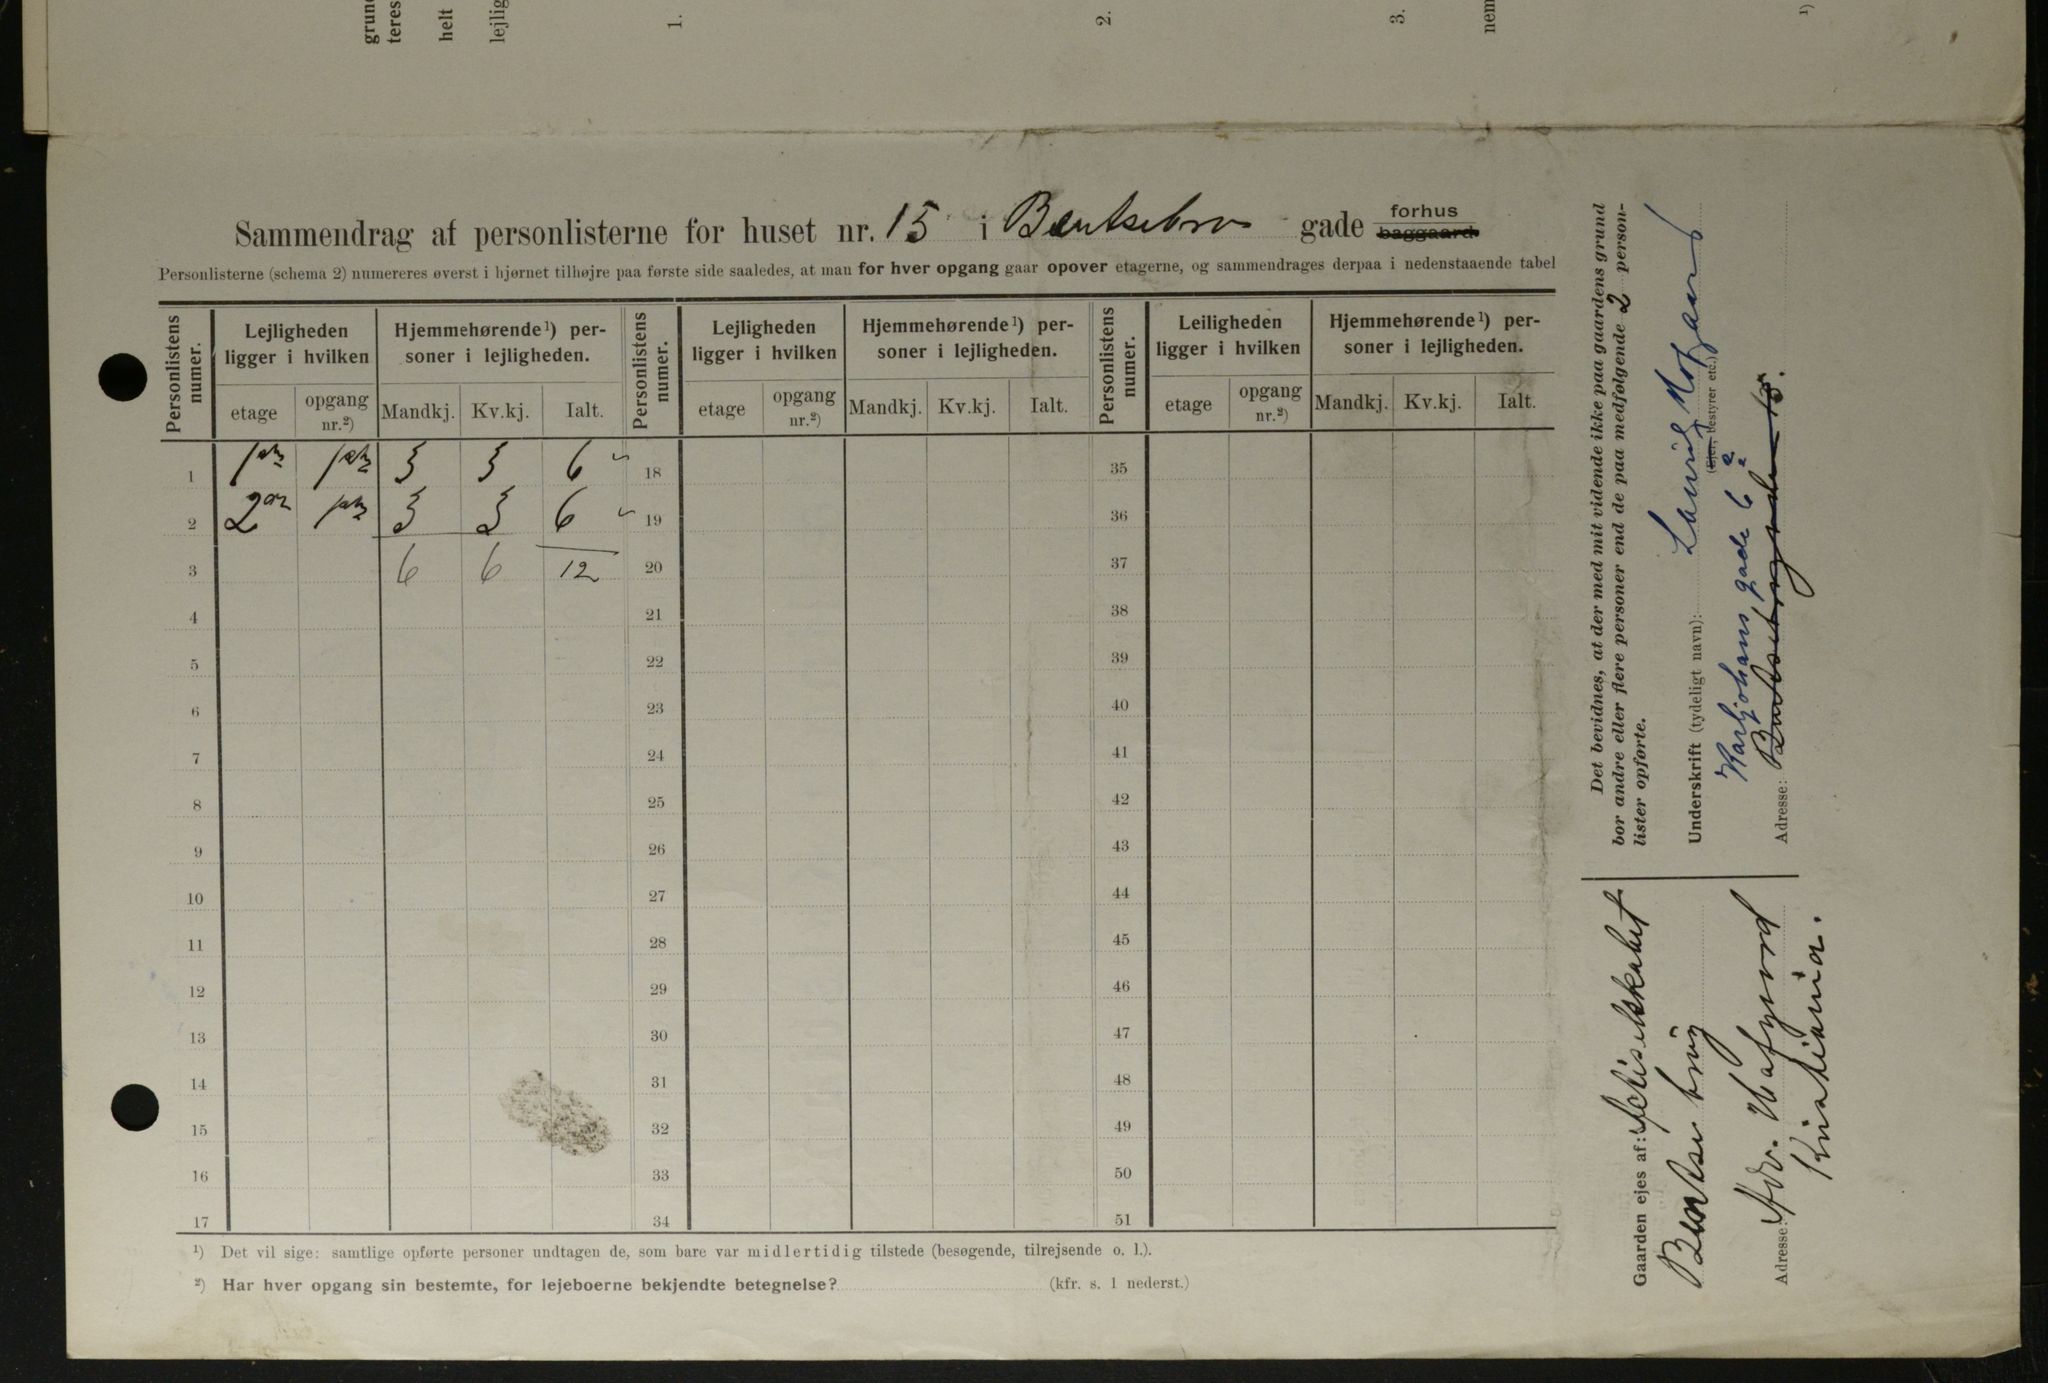 grun
teres
helt
lejlig
1.
2.
3.
nem
1)
Sammendrag af personlisterne for huset nr. 15 i Bentsebro gade forhus
baggaard
Personlisterne (schema 2) numereres øverst i hjørnet tilhøjre paa første side saaledes, at man for hver opgang gaar opover etagerne, og sammendrages derpaa i nedenstaaende tabel
Personlistens numer.
Lejligheden ligger i hvilken
Hjemmehørende 1) personer i lejligheden.
Personlistens numer.
Lejligheden ligger i hvilken
Hjemmehørende 1) personer i lejligheden.
Personlistens numer.
Leiligheden ligger i hvilken
Hjemmehørende 1) personer i lejligheden.
etage opgang nr.2) Mandkj. Kv.kj. Ialt. etage opgang nr.2) Mandkj. Kv.kj. Ialt. etage opgang nr.2) Mandkj. Kv.kj. Ialt.
1 3 3 6 18 35
2 2 3 3 6 19 36
3 6 6 12 20 37
4 21 38
5 22 39
6 23 40
7 24 41
8 25 42
9 26 43
10 27 44
11 28 45
12 29 46
13 30 47
14 31 48
15 32 49
16 33 50
17 34 51
1) Det vil sige: samtlige opførte personer undtagen de, som bare var midlertidig tilstede (besøgende, tilrejsende o. l.).
2) Har hver opgang sin bestemte, for lejeboerne bekjendte betegnelse? (kfr. s. 1 nederst.)
Det bevidnes, at der med mit vidende ikke paa gaardens grund
bor andre eller flere personer end de paa medfølgende 2 person-
lister opførte.
Underskrift (tydeligt navn): Lauritz
(Ejer, bestyrer etc.)
Karljohans gade 6
Adresse: Bentsebrogade 15.
Gaarden ejes af: Aktieselskabet
Bentse brug
Adresse: Adv.
Kristiania.